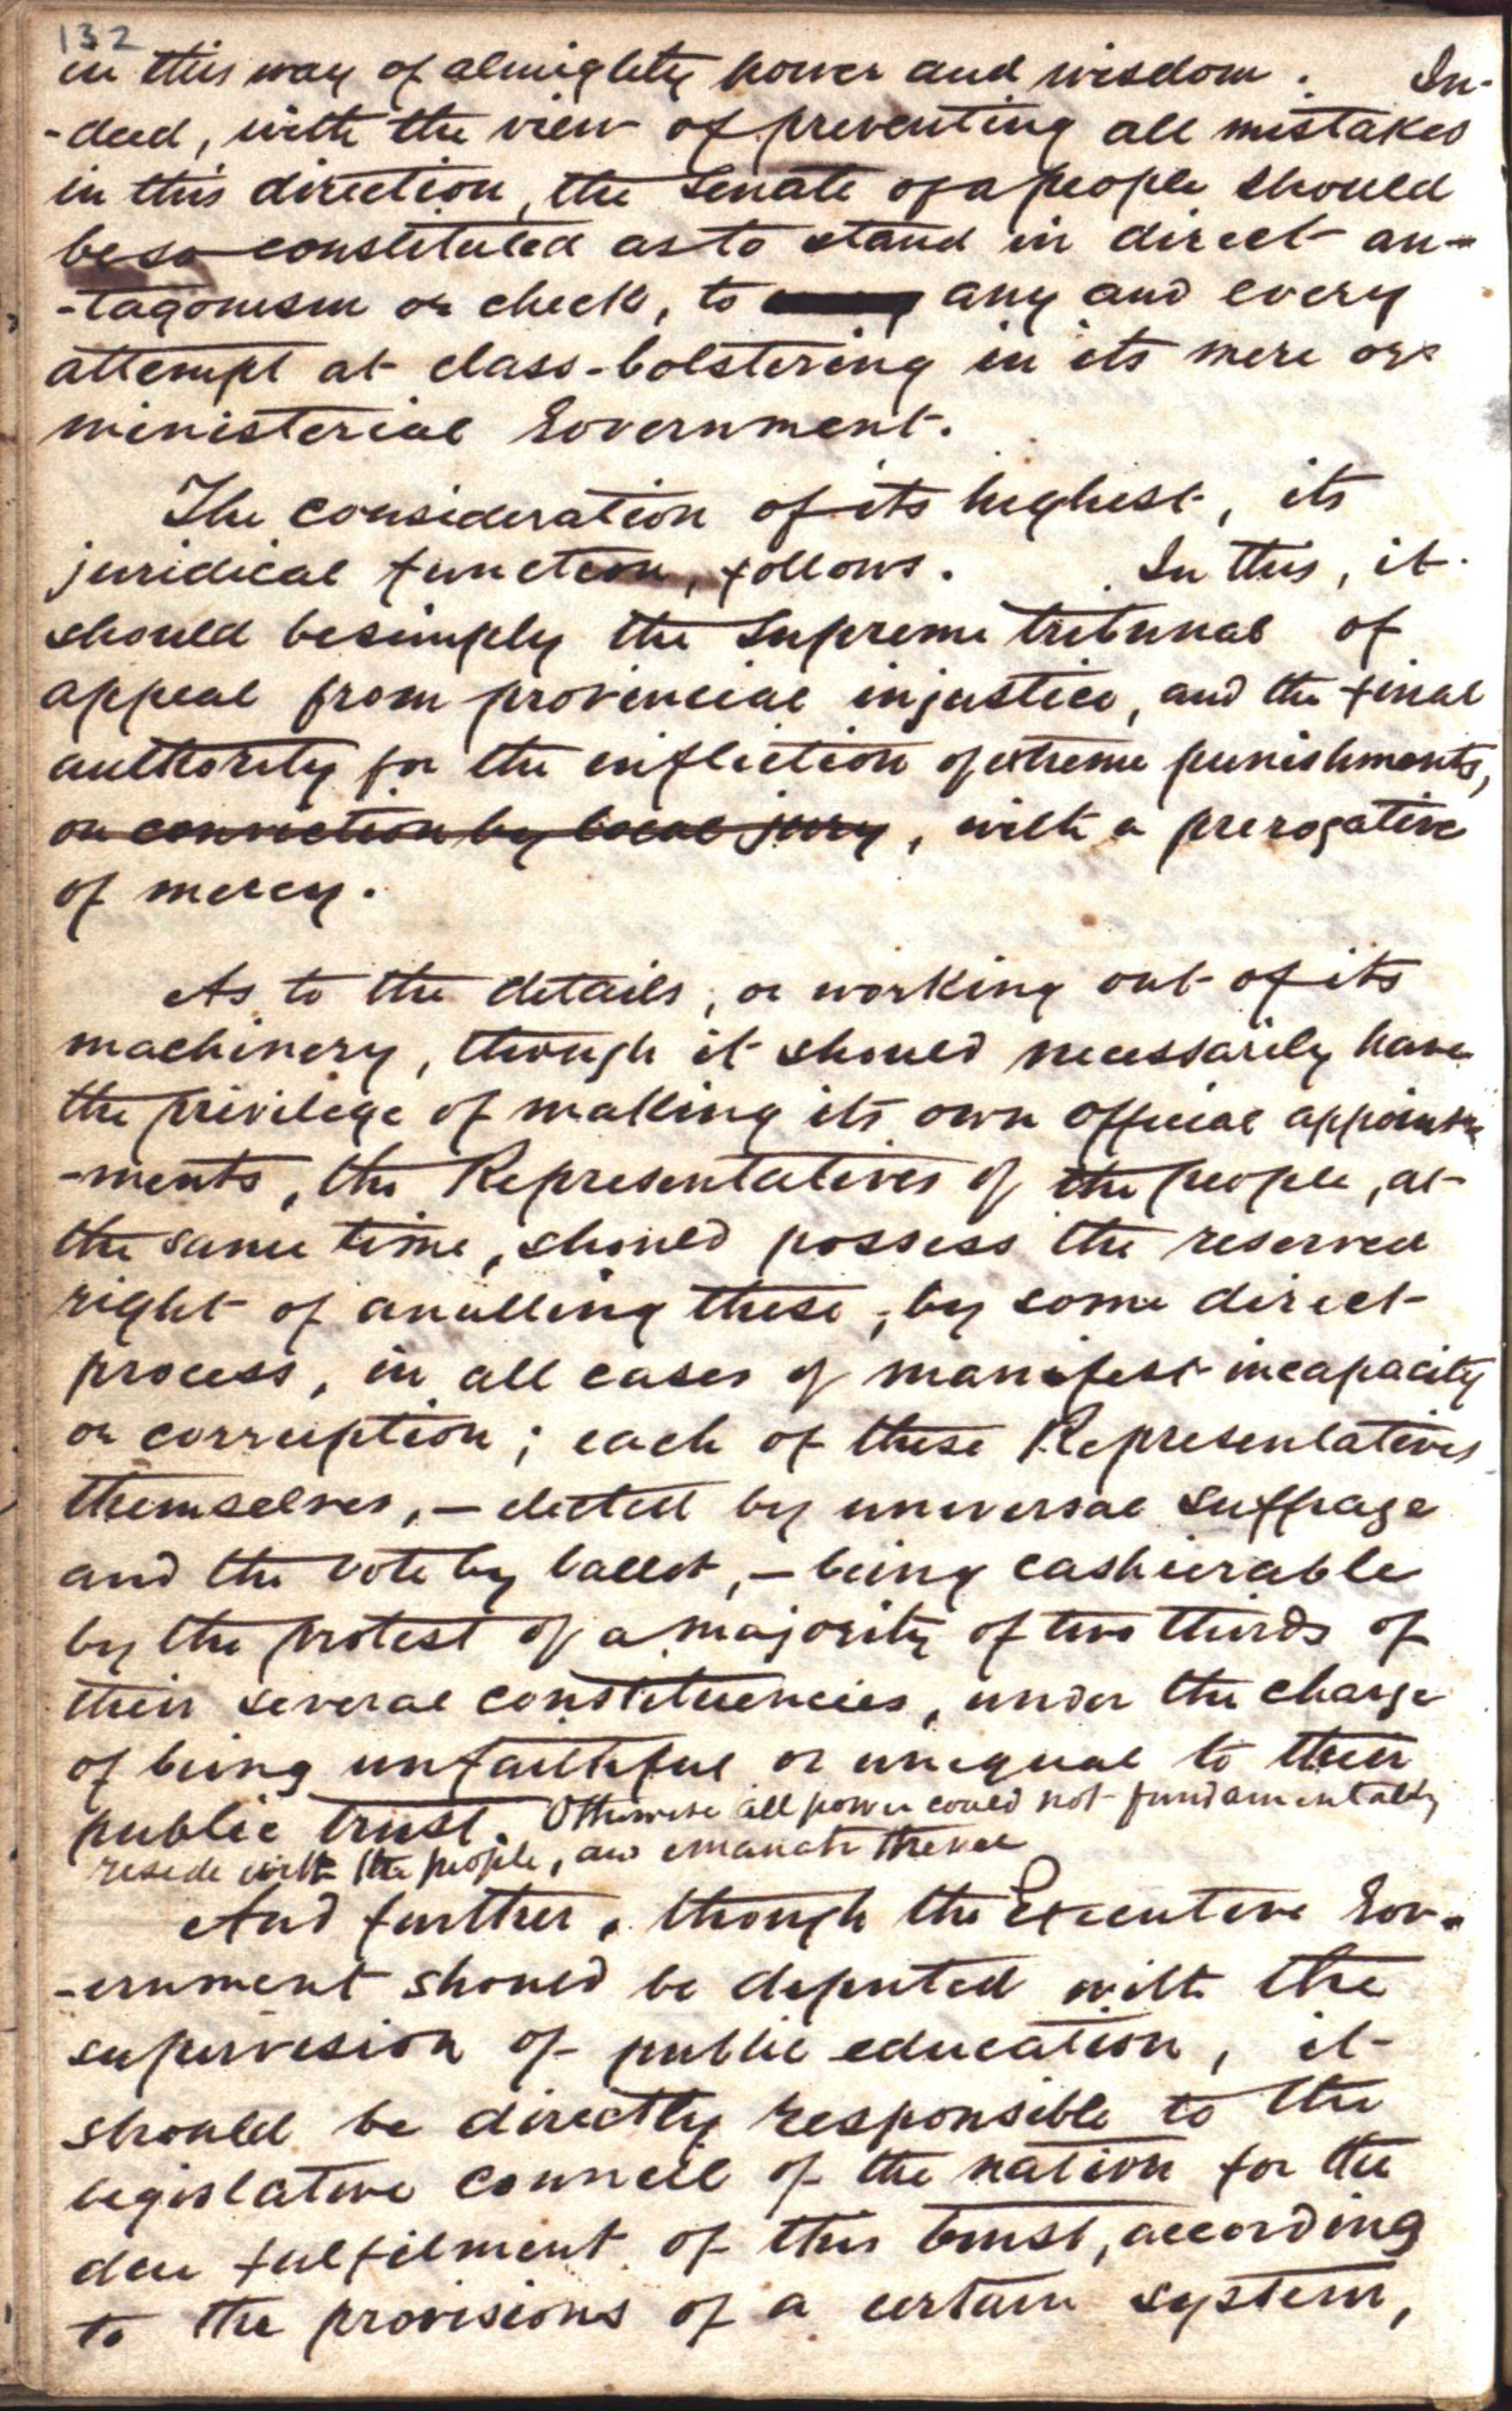 132
in this way of almighty power and wisdom. In-
-deed, with the view of preventing all mistakes
in this direction, the Senate of a people should
be so constituted as to stand in direct an-
-tagonism or check, to any and every
attempt at class-bolstering in its mere or
ministerial Government.
The consideration of its highest, its
juridical function, follows. In this, it
should be simply the Supreme tribunal of
appeal from provincial injustice, and the final
authority for the infliction of extreme punishments,
on conviction by local jury, with a prerogative
of mercy.
As to the details, or working out of its
machinery, though it should necessarily have
the privilege of making its own official appoint-
-ments, the Representatives of the people, at
the same time, should possess the reserved
right of anulling these, by some direct
process, in all cases of manifest incapacity
or corruption; each of these Representatives
themselves, - elected by universal suffrage
and the vote by ballot, - being cashierable
by the protest of a majority of two thirds of
their several constituencies, under the charge
of being unfaithful or unequal to their
public trust. Otherwise all power could not fundamentally
reside with the people, and emanate thence
And further, though the Executive Gov-
-ernment should be deputed with the
supervision of public education, it
should be directly responsible to the
legislative council of the nation for the
due fulfilment of this trust, according
to the provisions of a certain system,